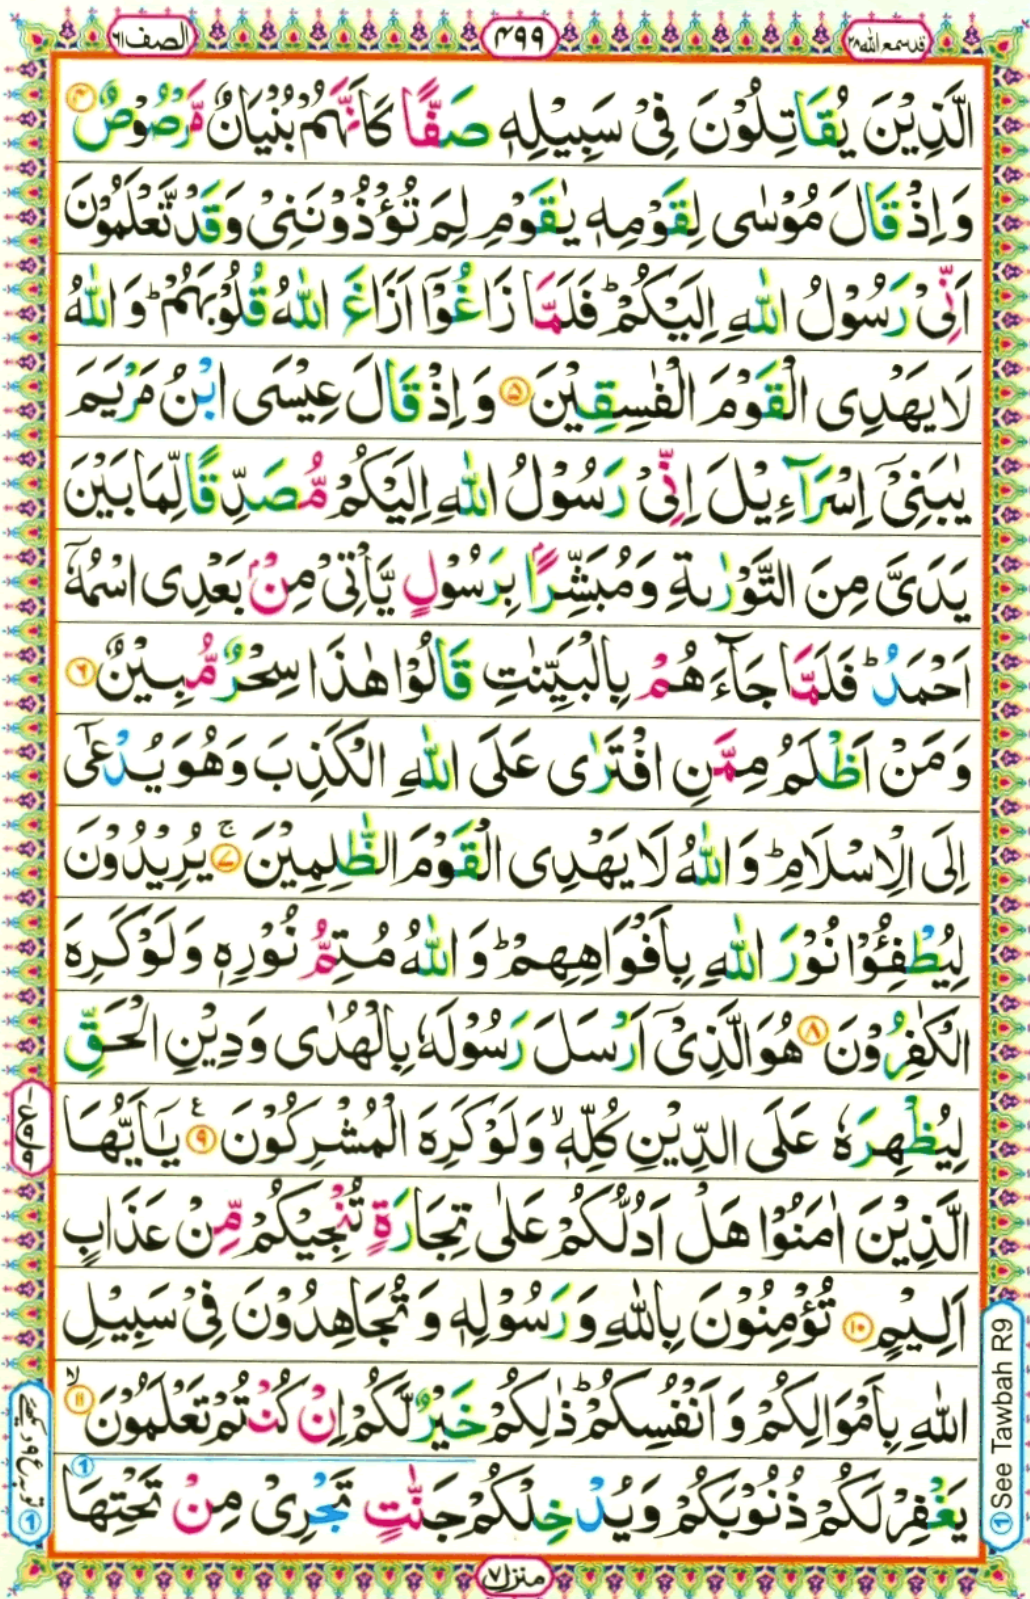 الصف ٦١
۴۹۹
قد سمع الله ٢٨
الَّذِيْنَ يُقَاتِلُوْنَ فِيْ سَبِيْلِهٖ صَفًّا كَاَنَّهُمْ بُنْيَانٌ مَّرْصُوْصٌ ۴
وَاِذْ قَالَ مُوْسٰى لِقَوْمِهٖ يٰقَوْمِ لِمَ تُؤْذُوْنَنِيْ وَقَدْ تَّعْلَمُوْنَ
اَنِّيْ رَسُوْلُ اللّٰهِ اِلَيْكُمْ ؕ فَلَمَّا زَاغُوْۤا اَزَاغَ اللّٰهُ قُلُوْبَهُمْ ؕ وَاللّٰهُ
لَا يَهْدِى الْقَوْمَ الْفٰسِقِيْنَ ۵ وَاِذْ قَالَ عِيْسَى ابْنُ مَرْيَمَ
يٰبَنِيْۤ اِسْرَآءِيْلَ اِنِّيْ رَسُوْلُ اللّٰهِ اِلَيْكُمْ مُّصَدِّقًا لِّمَا بَيْنَ
يَدَيَّ مِنَ التَّوْرٰىةِ وَمُبَشِّرًاۢ بِرَسُوْلٍ يَّاْتِيْ مِنْۢ بَعْدِى اسْمُهٗۤ
اَحْمَدُ ؕ فَلَمَّا جَآءَهُمْ بِالْبَيِّنٰتِ قَالُوْا هٰذَا سِحْرٌ مُّبِيْنٌ ۶
وَمَنْ اَظْلَمُ مِمَّنِ افْتَرٰى عَلَى اللّٰهِ الْكَذِبَ وَهُوَ يُدْعٰۤى
اِلَى الْاِسْلَامِ ؕ وَاللّٰهُ لَا يَهْدِى الْقَوْمَ الظّٰلِمِيْنَ ۷ ۚ يُرِيْدُوْنَ
لِيُطْفِـُٔوْا نُوْرَ اللّٰهِ بِاَفْوَاهِهِمْ ؕ وَاللّٰهُ مُتِمُّ نُوْرِهٖ وَلَوْ كَرِهَ
الْكٰفِرُوْنَ ۸ هُوَ الَّذِيْۤ اَرْسَلَ رَسُوْلَهٗ بِالْهُدٰى وَدِيْنِ الْحَقِّ
لِيُظْهِرَهٗ عَلَى الدِّيْنِ كُلِّهٖ ۙ وَلَوْ كَرِهَ الْمُشْرِكُوْنَ ۹ ع يٰۤاَيُّهَا
الَّذِيْنَ اٰمَنُوْا هَلْ اَدُلُّكُمْ عَلٰى تِجَارَةٍ تُنْجِيْكُمْ مِّنْ عَذَابٍ
اَلِيْمٍ ۱۰ تُؤْمِنُوْنَ بِاللّٰهِ وَرَسُوْلِهٖ وَتُجَاهِدُوْنَ فِيْ سَبِيْلِ
اللّٰهِ بِاَمْوَالِكُمْ وَاَنْفُسِكُمْ ؕ ذٰلِكُمْ خَيْرٌ لَّكُمْ اِنْ كُنْتُمْ تَعْلَمُوْنَ ۱۱ ۙ
1
يَغْفِرْ لَكُمْ ذُنُوْبَكُمْ وَيُدْخِلْكُمْ جَنّٰتٍ تَجْرِيْ مِنْ تَحْتِهَا
1 See Tawbah R9
منزل ۷